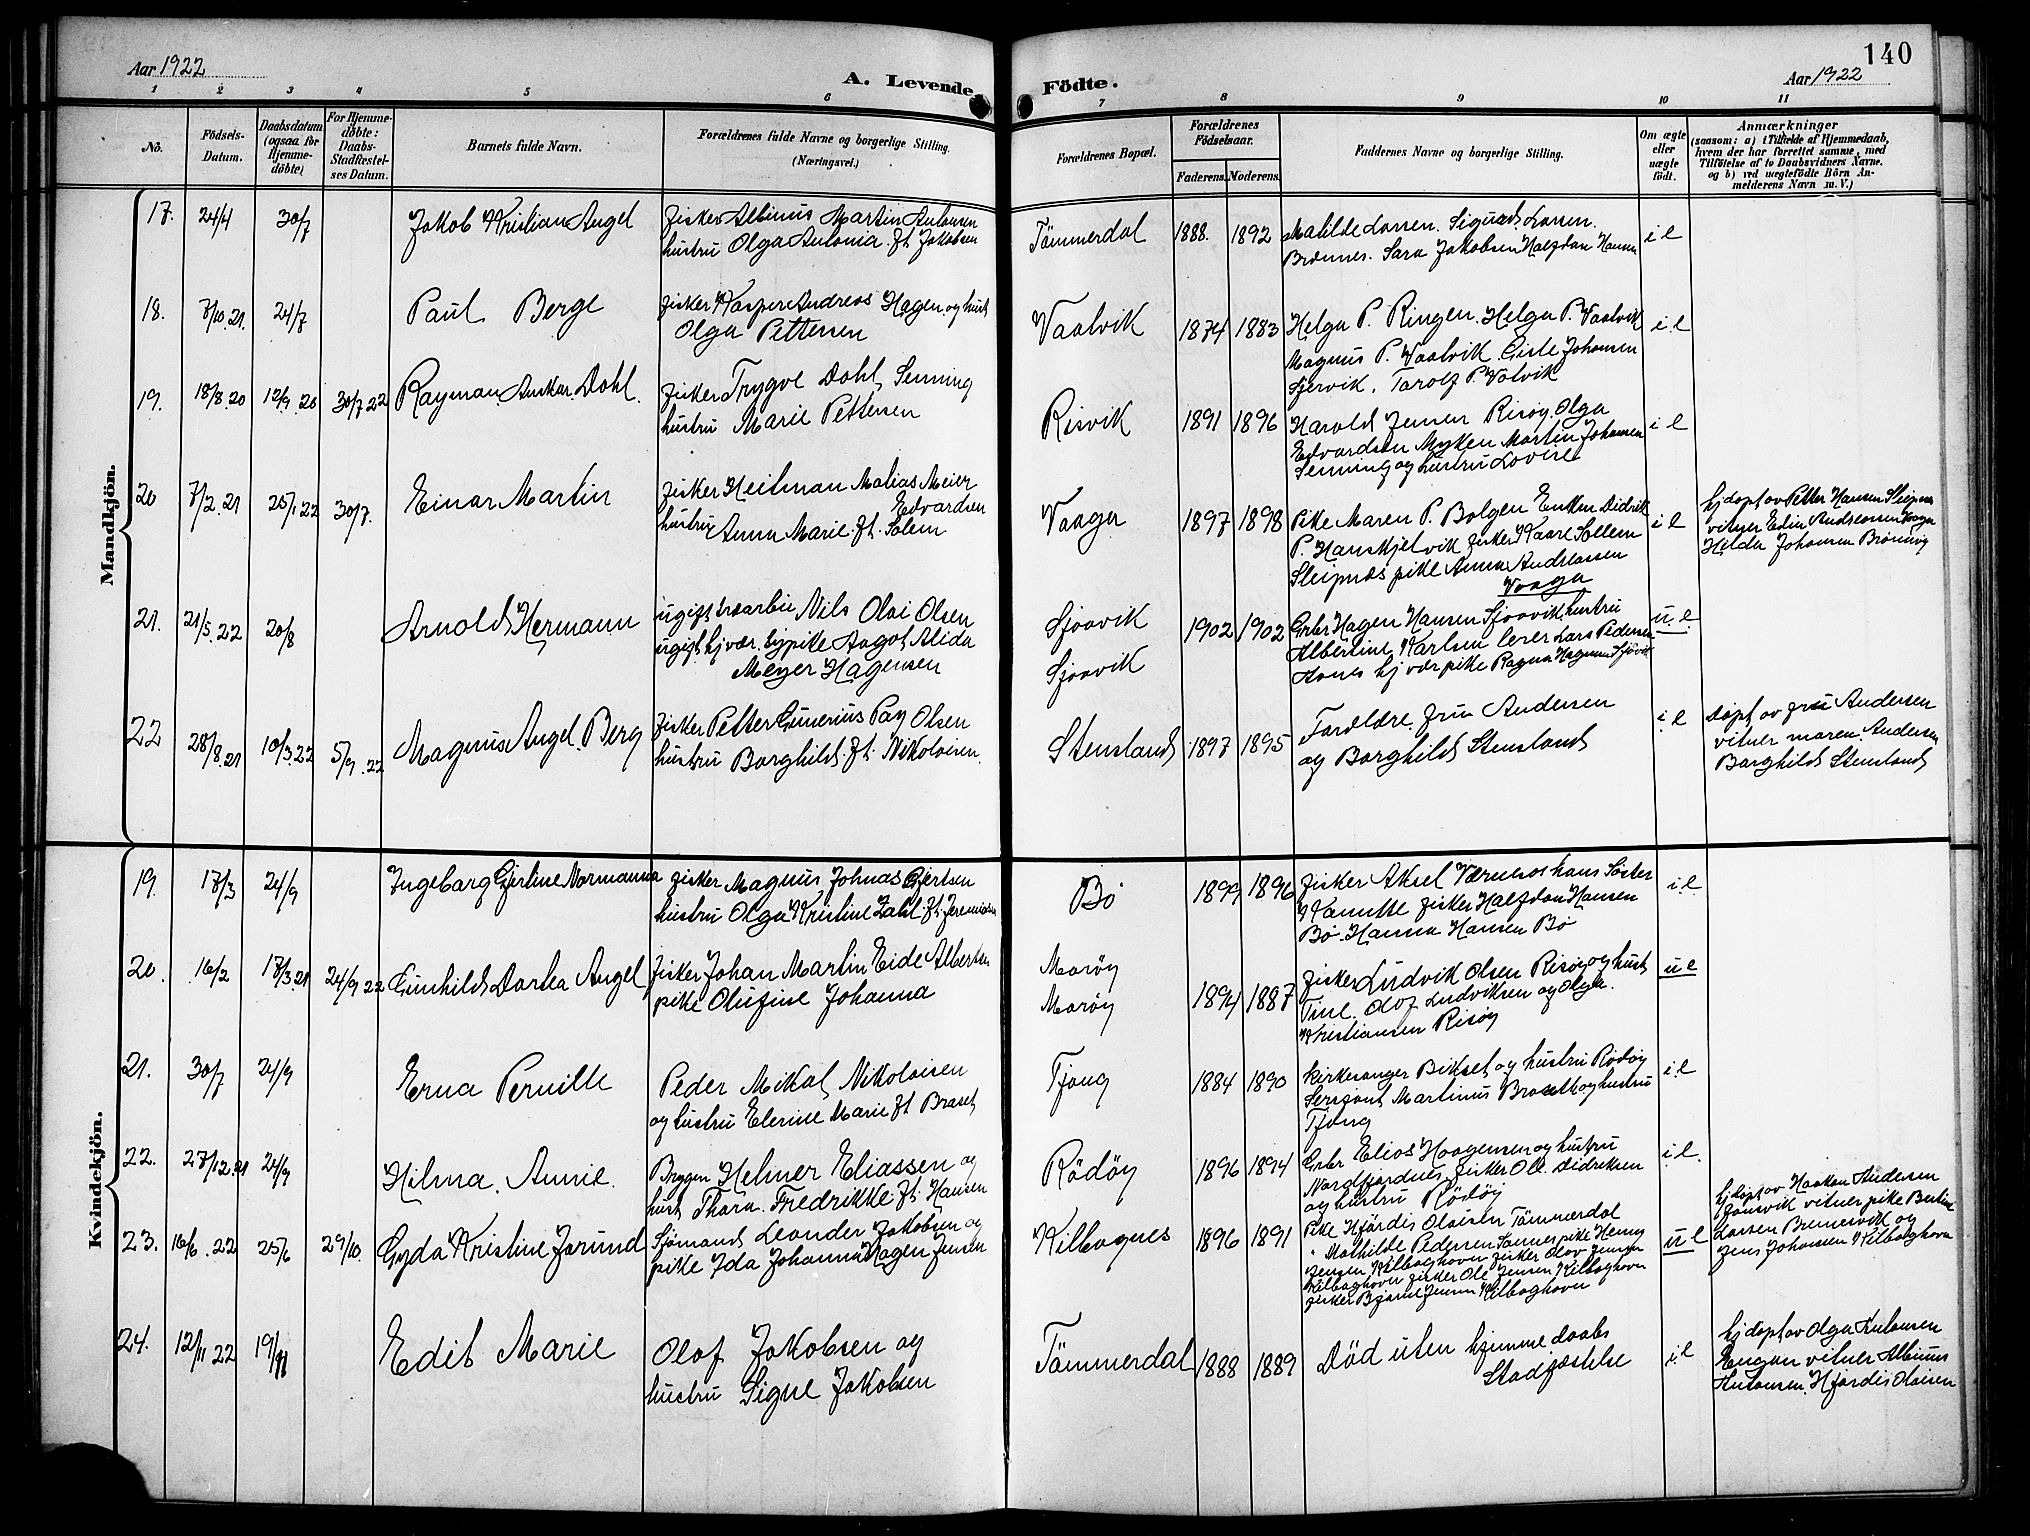 Aar 1922
A. Levende Födte.
140
Aar 1922
1 2 3 4 5 6 7 8 9 10 11
No.
Födsels-Datum.
Daabsdatum (ogsaa for Hjemme-döbte)
For Hjemme-döbte: Daabs-Stadfæstel-ses Datum.
Barnets fulde Navn.
Forældrenes fulde Navne og borgerlige Stilling. (Næringsvei.)
Forældrenes Bopæl.
Forældrenes Födselsaar.
Faderens. Moderens.
Faddernes Navne og borgerlige Stilling.
Om ægte eller uægte födt.
Anmærkninger
(saasom: a) i Tilfælde af Hjemmedaab,
hvem der har forrettet samme, med
Tilföielse af to Daabsvidners Navne.
og b) ved uægtefödte Börn An-
melderens Navn m. V.)
Mandkjön.
17. 24/4 30/7 Jakob Kristian Angel
Fisker Albinus Martin Antonsen
hustru Olga Antonia. ft. Jakobsen
Tömmerdal 1888. 1892
Matilde Larsen. Sigurd Larsen.
Brænnes. Sara Jakobsen Halfdan Hansen
i e
18. 7/10.21. 24/7 Paul Berge
Fisker Kasper Andreas Hagen og hust
Olga Pettersen
Vaalvik 1874 1883
Helga P. Ringen. Helga P. Vaalvik
Magnus P. Vaalvik Johansen
P. Valvik
i e
19. 18/8.20 12/9.20 30/7 22 Rayman Anskar Dahl.
Fisker Trygve Dahl, Senning
hustru Marie Pettersen
Risvik 1891 1896
Harald Jensen Risöy. Olga
Edvardsen Myken Martin Johansen
Senning og hustru Lovise
i e
20 7/2.21 25/1 22 30/7. Einar Martin
Fisker Heitman Matias Meier
Edvardsen
hustru Anna Marie. ft. Solem
Vaaga 1897 1898
Pike Maren P. Bolgen Didrik
P. Hanskjelvik Fisker Kaare Sollem
Sleipnes pike Anna Andreassen
Vaaga
i e
hj döpt av Petter Hansen Sleipnes
vitner Andreassen Vaaga
Johansen
21. 21/5.22 20/8 Arnold Hermann
ugift Nils Olai Olsen
ugift Aagot Alida
Meyer Hagensen
Sjoavik
Sjoavik
1902 1902
Grbr Hagen Hansen Sjoavik. hustru
Albertine Karlsen lærer Lars Pedersen
pike Ragna
u. e.
22 28/8.21 10/3.22 5/9.22 Magnus Angel. Berg
Fisker Petter Gunerius Pay Olsen
hustru Borghild. ft. Nikolaisen.
Stensland 1897 1895
Foreldre. Fru Andersen
og Borghild Stensland
i e
Döpt av Fru Andersen
vitner maren. Andersen
Borghild Stensland
Kvindekjön.
19. 17/3 24/9 Ingeborg Gjertine Normanna
Fisker Magnus Johnas Gjertsen
hustru Olga Kristine Zahl. ft. Jeremiasen
Bö 1899 1896
Fisker Aksel Værnes hans Söster
Fisker Halfdan Hansen
Bö. Hanna Hansen Bö
i. e
20. 16/2 17/3.21 24/9 22 Gunhild Dortea Angel
Fisker Johan Martin Eide Albertsen
pike Olufine Johanna
Moröy
Moröy
1894 1887
Fisker Ludvik Olsen Risöy og hust
Tine. Olof Ludviksen og Olga.
Kristiansen Risöy
u e
21. 30/7 24/9 Erna Pernille
Peder Mikal Nikolaisen
og hustru Elerine Marie ft Braset
Tjong 1884 1890
Kirkesanger Bikset og hustru Rödöy
Sersjant Martinus og hustru
Tjong
i e
22. 27/12.21 24/9 Hilma. Annie.
Helmer Eliassen og
hust Thora. Fredrikke. ft. Hansen
Rödöy 1896 1894
Grbr Elias Haagensen og hustru
Nordfjordnes, Fisker Ole. Didriksen
og hustru Rödöy
i e.
23. 16/6.22 25/6 29/10. Gyda Kristine Jorund
Sjömand Leonder Jakobsen og
pike Ida Johanna Hagen Jensen
Kilbognes 1896 1891
Pike Hjördis Olaisen Tömmerdal
" Mathilde Pedersen pike Henny
Jensen Kilboghavn Fisker Olav Jensen
Kilboghavn Fisker Ole Jensen Kilboghavn
Fisker Bjarne Jensen Kilboghavn
u e
hj döpt av Haakon Andersen
vitner pike
Larsen og
Jens Johansen Kilboghavn
24. 12/11 22 19/11 Edit Marie
Olof Jakobsen og
hustru Signe Jakobsen
Tömmerdal 1888 1889
Död uten hjemme daabs
Stadfæstelse
i e
hj döpt av Olga Antonsen
vitner Albinus
Antonsen. Hjördis Olaisen